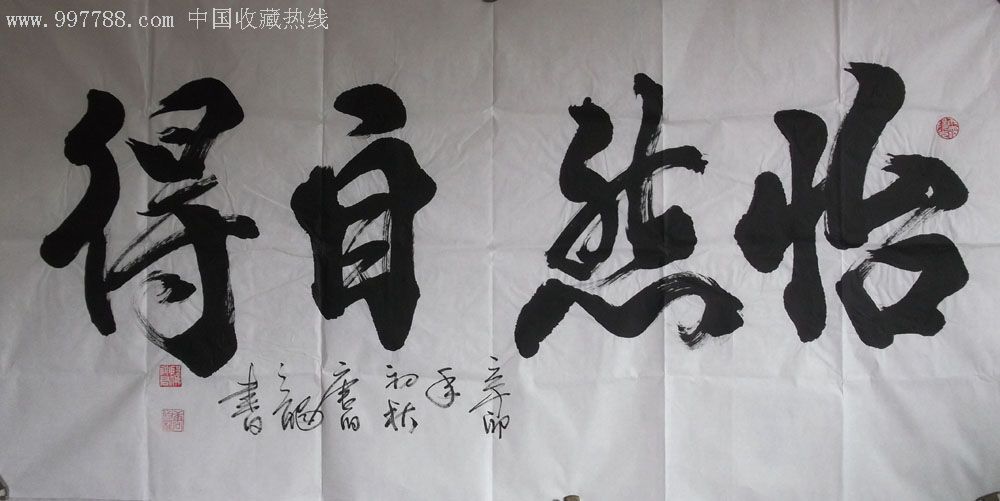 www.997788.com 中国收藏热线
怡然自得
辛卯
年
初秋
唐的
书